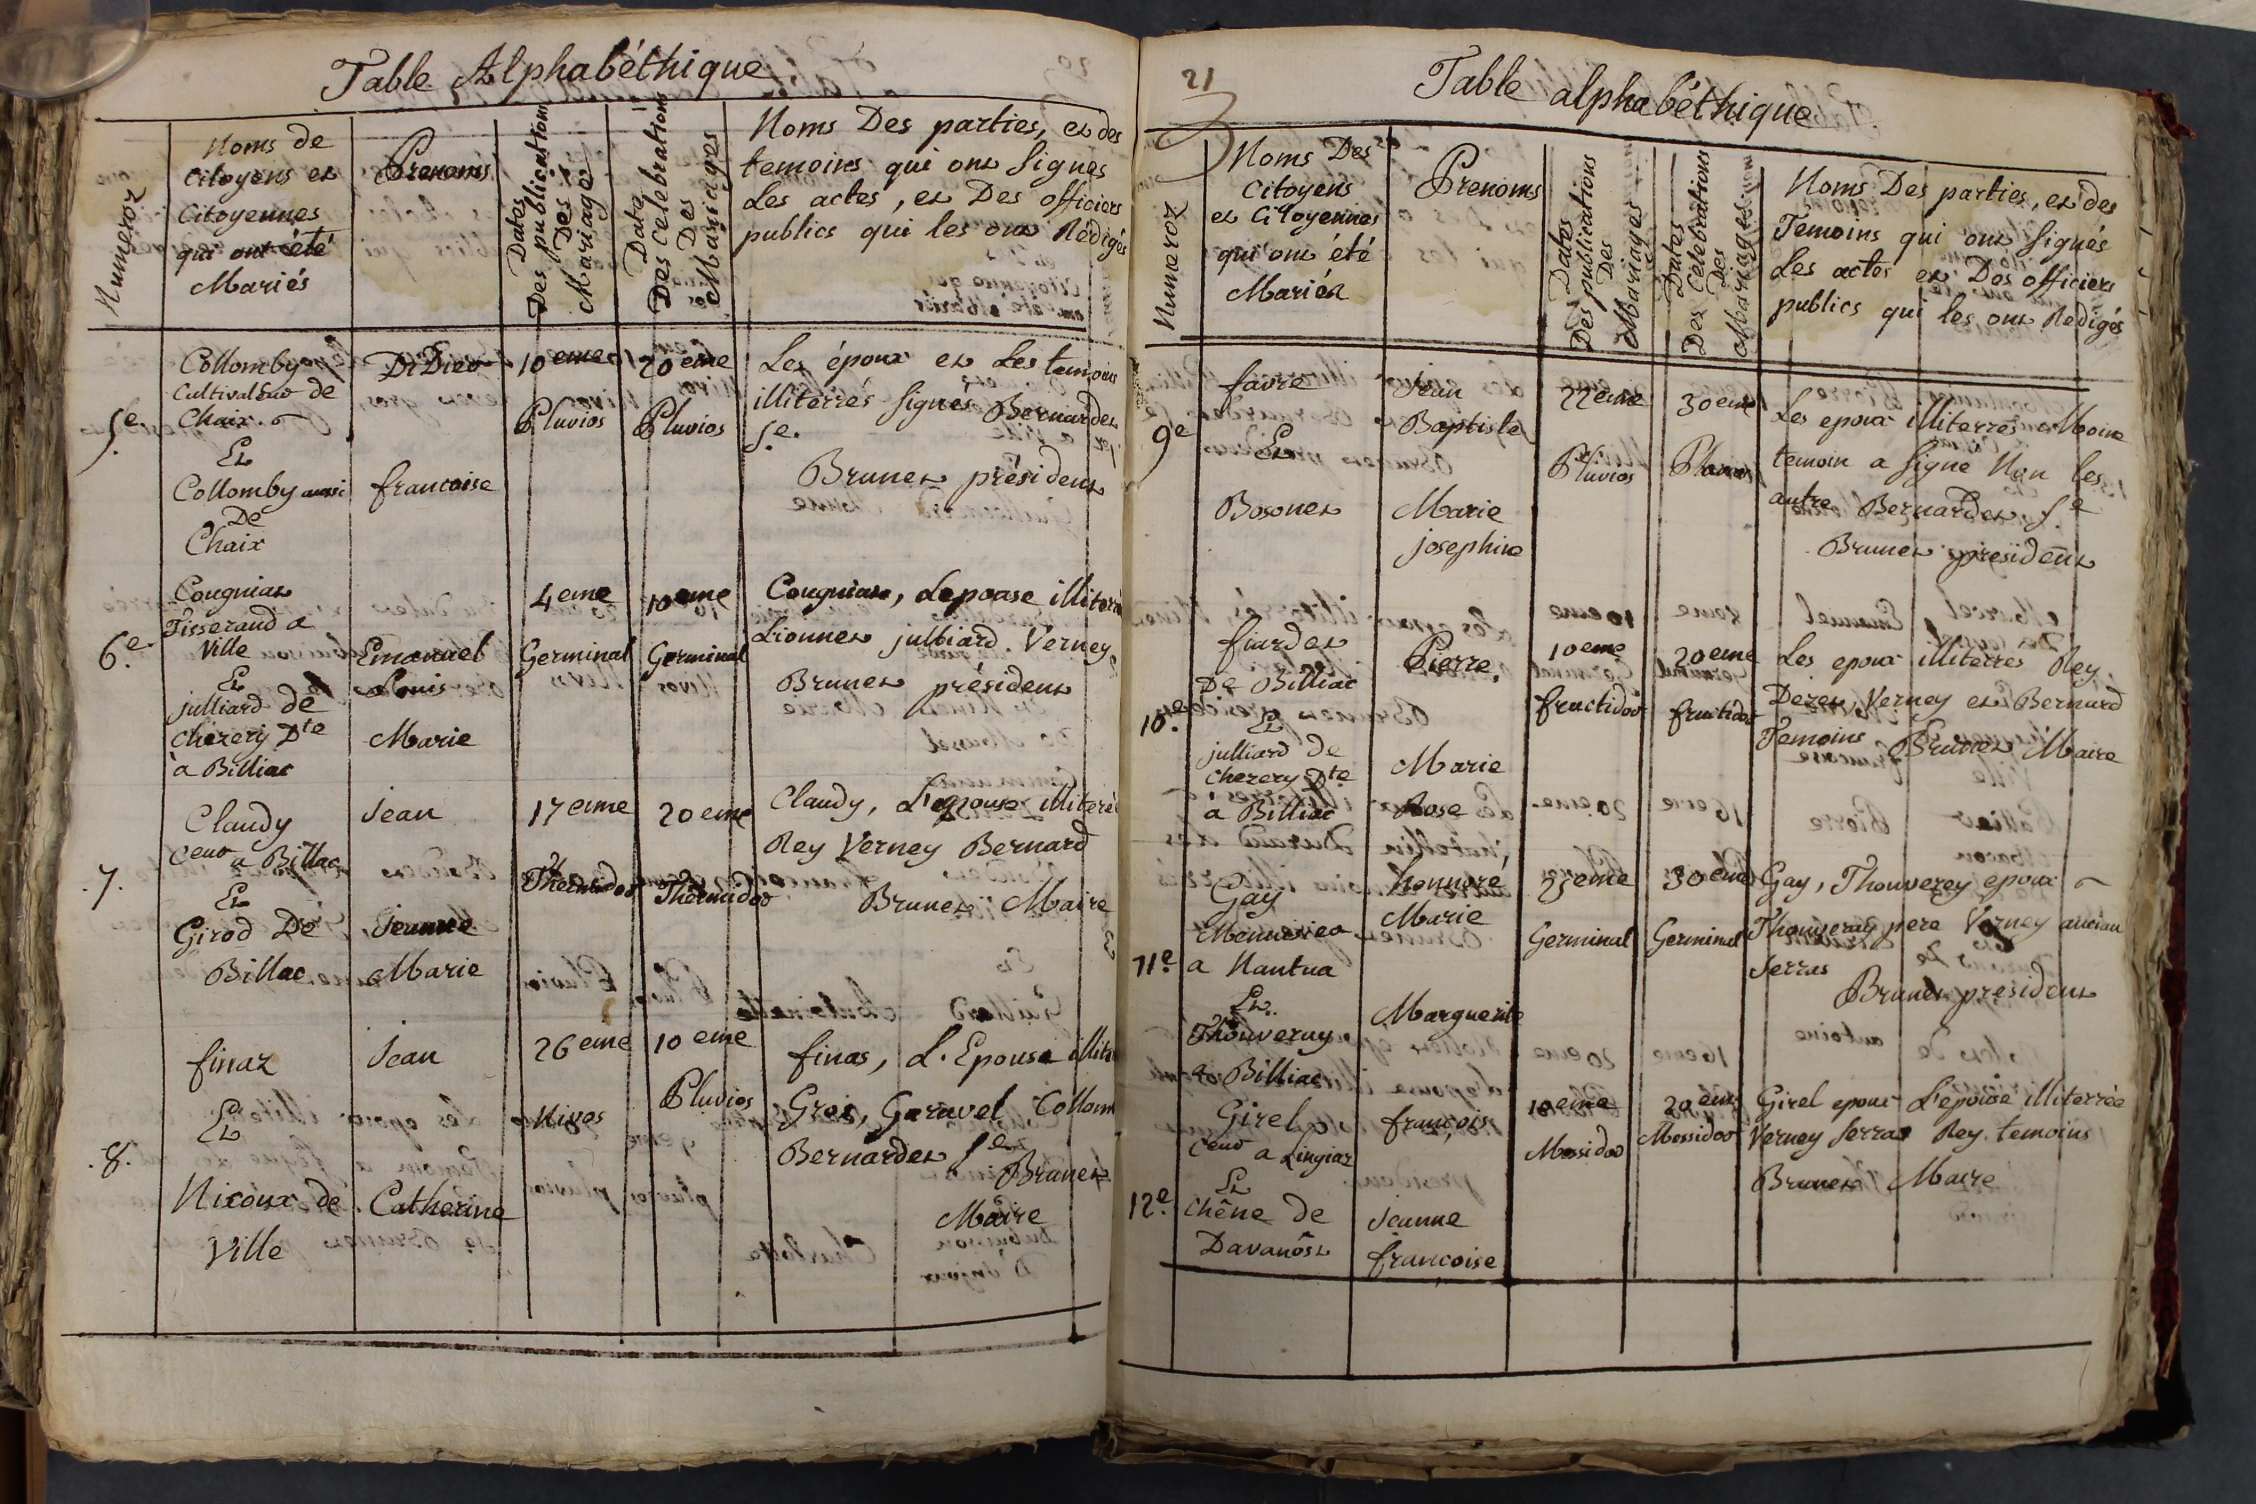 Table Alphabéthique
Numeroz
Noms de
Citoyens et
Citoyennes
qui ont été
Mariés
Prenoms
Dates
Des publications
Des
Mariages
Date
Des Celebrations
Des
Mariages
Noms Des parties, et des
temoins qui ont Signes
Les actes, et Des officiers
publics qui les ont Rédigés
5e.
Collomby
Cultivateur de
Chaix.
Et
Collomby aussi
De
Chaix
DiDier
francoise
10eme
Pluvios
20eme
Pluvios
Les époux et Les temoins
illiterrés Signes Bernardet
Se.
Brunet président
6e.
Cougniat
Tisserand a
Ville
Et
julliard de
Cherery Dte
à Billiac
Emanüel
Louis
Marie
4eme
Germinal
10eme
Germinal
Cougniat, Lepouse illiteré
Lionnet julliard. Verney
Brunet président
.7.
Claudy
Ceur a Billac
Et
Girod De
Billac
Jean
Jeanne
Marie
17eme
Thermidor
20eme
Thermidor
Claudy, L'epouse illiteré
Rey Verney Bernard
Brunet Maire
.8.
finaz
Et
Nicoux de
Ville
Jean
Catherine
26eme
Nivos
10eme
Pluvios
finas, L'Epouse illite
Gros, Garavel Collom
Bernardet Se
Brunet
Maire
21
Table alphabéthique
Numeroz
Noms Des
Citoyens
et Citoyennes
qui ont été
Mariés
Prenoms
Dates
Des publications
Des
Mariages
Dates
Des Celebrations
Des
Mariages
Noms Des parties, et des
Temoins qui ont Signés
Les actes et Des officiers
publics qui les ont Redigés
9e
favre
Et
Bosonet
Jean
Baptiste
Marie
josephine
22eme
Pluvios
30eme
Pluvios
Les epoux illiterrés Moine
temoin a Signe Non les
autre Bernardet Se
Brunet président
10e.
fiardet
De Billiac
Et
julliard de
Cherery Dte
à Billiac
Pierre,
Marie
Rose
10eme
fructidor
20eme
fructidor
Les epoux illiterres Rey
Dezet, Verney et Bernard
Temoins Brunet Maire
11e.
Gay
Menuisier
a Nantua
Et
Thouverny
a Billiac
honnoré,
Marie
Marguerite
25eme
Germinal
30eme
Germinal
Gay, Thouverey epoux
Thouverey pere Verney ancian
Serras
Brunet président
12e.
Girel
Ceur a Lingiaz
Et
Chêne de
Davanôst
françois
Jeanne
francoise
10eme
Messidor
20eme
Messidor
Girel epoux L'epouse illiterrée
Verney Serraz Rey. temoins
Brunet Maire